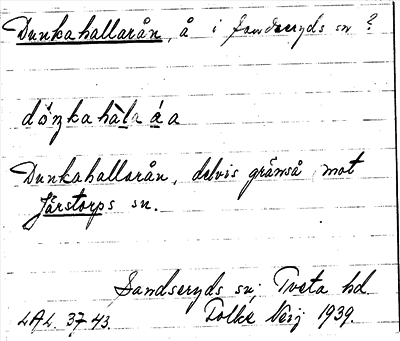 Dunkahallarån, å i Sandseryds sn ?
dåŋkahàla áa
Dunkahallarån, delvis gränså mot
Järstorps sn.
Sandseryds sn; Tveta hd.
LAL. 3743. Folke 1939.